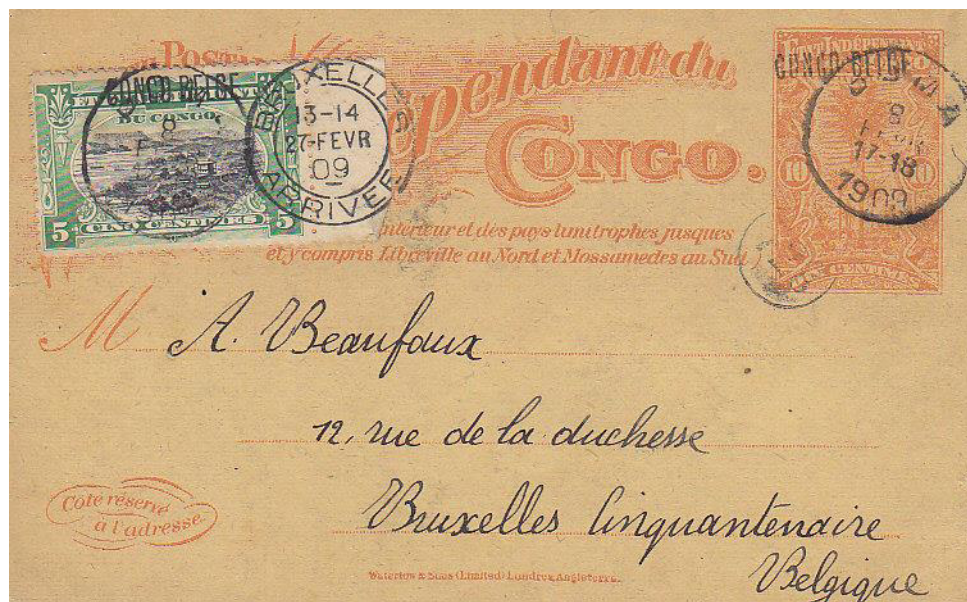 CONGO BELGE
DU CONGO
5 CINQ CENTIMES 5
BRUXELLES
13-14
27-FEVR
09
ARRIVEE
pendant du
CONGO.
CONGO BELGE
10 10
CENTIMES
BOMA
8
17-18
1909
intérieur et des pays limitrophes jusques
et y compris Libreville au Nord et Mossamedes au Sud)
M A. Beaufaux
12, rue de la duchesse
Bruxelles Cinquantenaire
Belgique
Côté réservé
à l'adresse.
Waterlow & Sons (Limited) Londres, Angleterre.